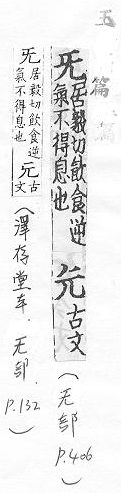 玉篇
旡居毅切飲食逆
氣不得息也
元古文
(旡部 P.406)
旡居毅切飲食逆
氣不得息也
元古文
(澤存堂本.旡部.P.132)